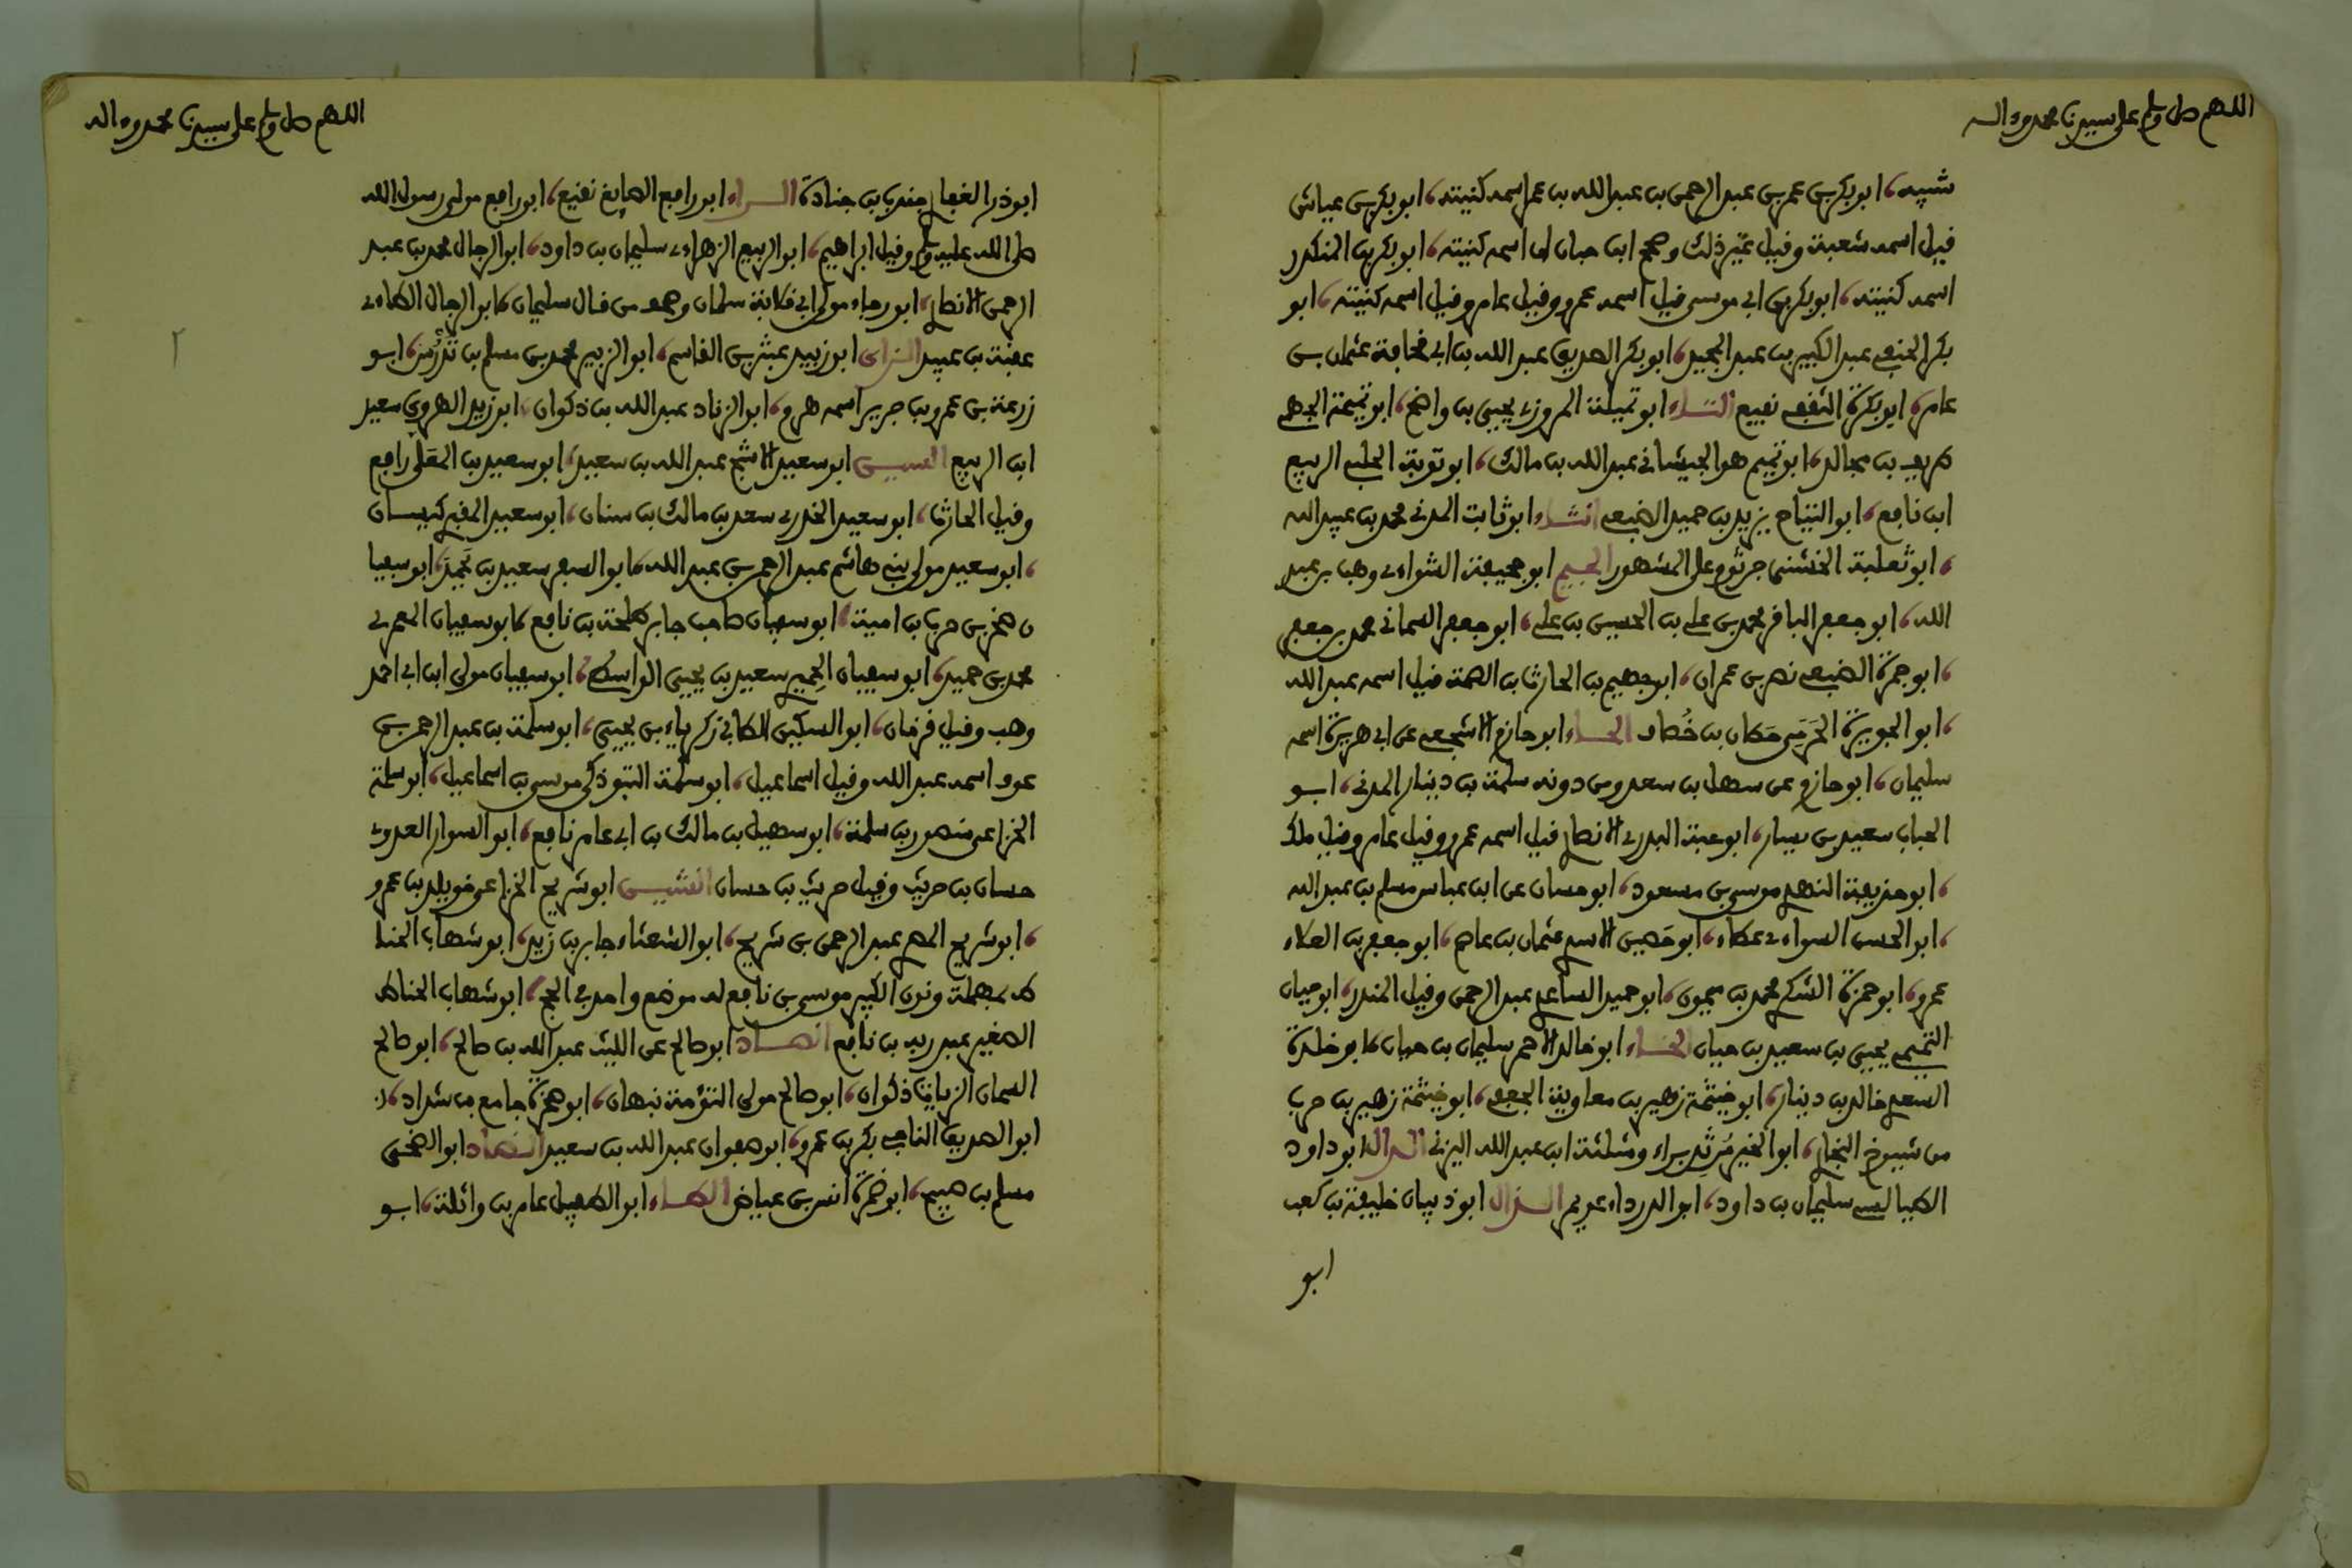 اللهم صل وسلم على سيدنا محمد وءاله
شيبه، ابو بكر بن عمر بن عبد الرحمن بن عبد الله بن عمر اسمه كنيته، ابو بكر بن عياش
فيل اسمه شعبة وفيل غير ذلك وصحح ابن حبان ان اسمه كنيته، ابو بكر بن المنكدر
اسمه كنيته، ابو بكر بن ابي موسى فيل اسمه عمرو وفيل عامر وفيل اسمه كنيته، ابو
بكر الحنفي عبد الكبير بن عبد المجيد، ابو بكر الصديق عبد الله بن ابي فحافة عثمان بن
عامر، ابو بكرة الثففي نفيع التاء ابو تميلة المروزي يحيى بن واضح، ابو تميمة الجهمي
طريف بن مجالد، ابو تميم هو الجيشاني عبد الله بن مالك، ابو توبة الحلبي الربيع
ابن نافع، ابو التياح يزيد بن حميد الضبعي الثاء ابو ثابت المدني محمد بن عبيد الله
، ابو ثعلبة الخشني جرثوم على المشهور الجيم ابو جحيفة السوائي وهب بن عبد
الله، ابو جعفر البافر محمد بن علي بن الحسين بن علي، ابو جعفر السماني محمد بن جعفر
، ابو جمرة الضبعي نصر بن عمران، ابو جهيم بن الحارث بن الصمة فيل اسمه عبد الله
، ابو الجويرية الجرمي حطان بن خفاف الحاء ابو حازم الاشجعي عن ابي هريرة اسمه
سليمان، ابو حازم عن سهل بن سعد ومن دونه سلمة بن دينار المدني، ابو
الحباب سعيد بن يسار، ابو حبة البدري الانصاري فيل اسمه عمرو وفيل عامر وفيل ملك
، ابو حذيفة النهدي موسى بن مسعود، ابو حسان عن ابن عباس مسلم بن عبد الله
، ابو الحسن السوائي عطاء، ابو حصين الاسدي عثمان بن عاصم، ابو جعفر بن العلاء
عمرو، ابو حمزة السكري محمد بن ميمون، ابو حميد الساعدي عبد الرحمن وفيل المنذر، ابو حيان
التميمي يحيى بن سعيد بن حيان الخاء ابو خالد الاحمر سليمان بن حيان، ابو خلدة
السعدي خالد بن دينار، ابو خيثمة زهير بن معاوية الجعفي، ابو خيثمة زهير بن حرب
من شيوخ البخاري، ابو الخير مرثد براء ومثلثة ابن عبد الله اليزني الدال ابو داود
الطيالسي سليمان بن داود، ابو الدرداء عويمر الذال ابو ذبيان خليفة بن كعب
ابو
اللهم صل وسلم على سيدنا محمد وءاله
٢
ابو ذر الغفاري جندب بن جنادة الراء ابو رافع الصايغ نفيع، ابو رافع مولى رسول الله
صلى الله عليه وسلم وفيل ابراهيم، ابو الربيع الزهراني سليمان بن داود، ابو الرجال محمد بن عبد
الرحمن الانصاري، ابو رجاء مولى ابي فلابة سلمان وصحف من فال سليمان، ابو الرحال الطائي
عفبة بن عبيد الزاي ابو زبيد عبثر بن الفاسم، ابو الزبير محمد بن مسلم بن تدرس، ابو
زرعة بن عمرو بن جرير اسمه هرم، ابو الزناد عبد الله بن ذكوان، ابو زيد الهروي سعيد
ابن الربيع السين ابو سعيد الاشج عبد الله بن سعيد، ابو سعيد بن المعلى رافع
وفيل الحارث، ابو سعيد الخدري سعد بن مالك بن سنان، ابو سعيد المفبري كيسان
، ابو سعيد مولى بني هاشم عبد الرحمن بن عبد الله، ابو السفر سعيد بن يحمد، ابو سفيا
ن صخر بن حرب بن امية، ابو سفيان صاحب جابر طلحة بن نافع، ابو سفيان المعمري
محمد بن حميد، ابو سفيان الحميري سعيد بن يحيى الواسطي، ابو سفيان مولى ابن ابي احمد
وهب وفيل فزمان، ابو السكين الطائي زكرياء بن يحيى، ابو سلمة بن عبد الرحمن بن
عوف اسمه عبد الله وفيل اسماعيل، ابو سلمة التبوذكي موسى بن اسماعيل، ابو سلمة
الخزاعي منصور بن سلمة، ابو سهيل بن مالك بن ابي عامر نافع، ابو السوار العدوي
حسان بن حريث وفيل حريث بن حسان الشين ابو شريح الخزاعي خويلد بن عمرو
، ابو شريح المصري عبد الرحمن بن شريح، ابو الشعثاء جابر بن زيد، ابو شهاب الحنا
ط بمهملة ونون الكبير موسى بن نافع له موضع واحد في الحج، ابو شهاب الحناط
الصغير عبد ربه بن نافع الصاد ابو صالح عن الليث عبد الله بن صالح، ابو صالح
السمان الزيات ذكوان، ابو صالح مولى التوءمة نبهان، ابو صخرة جامع بن شداد،
ابو الصديق الناجي بكر بن عمرو، ابو صفوان عبد الله بن سعيد الضاد ابو الضحى
مسلم بن صبيح، ابو ضمرة انس بن عياض الطاء ابو الطفيل عامر بن واثلة، ابو